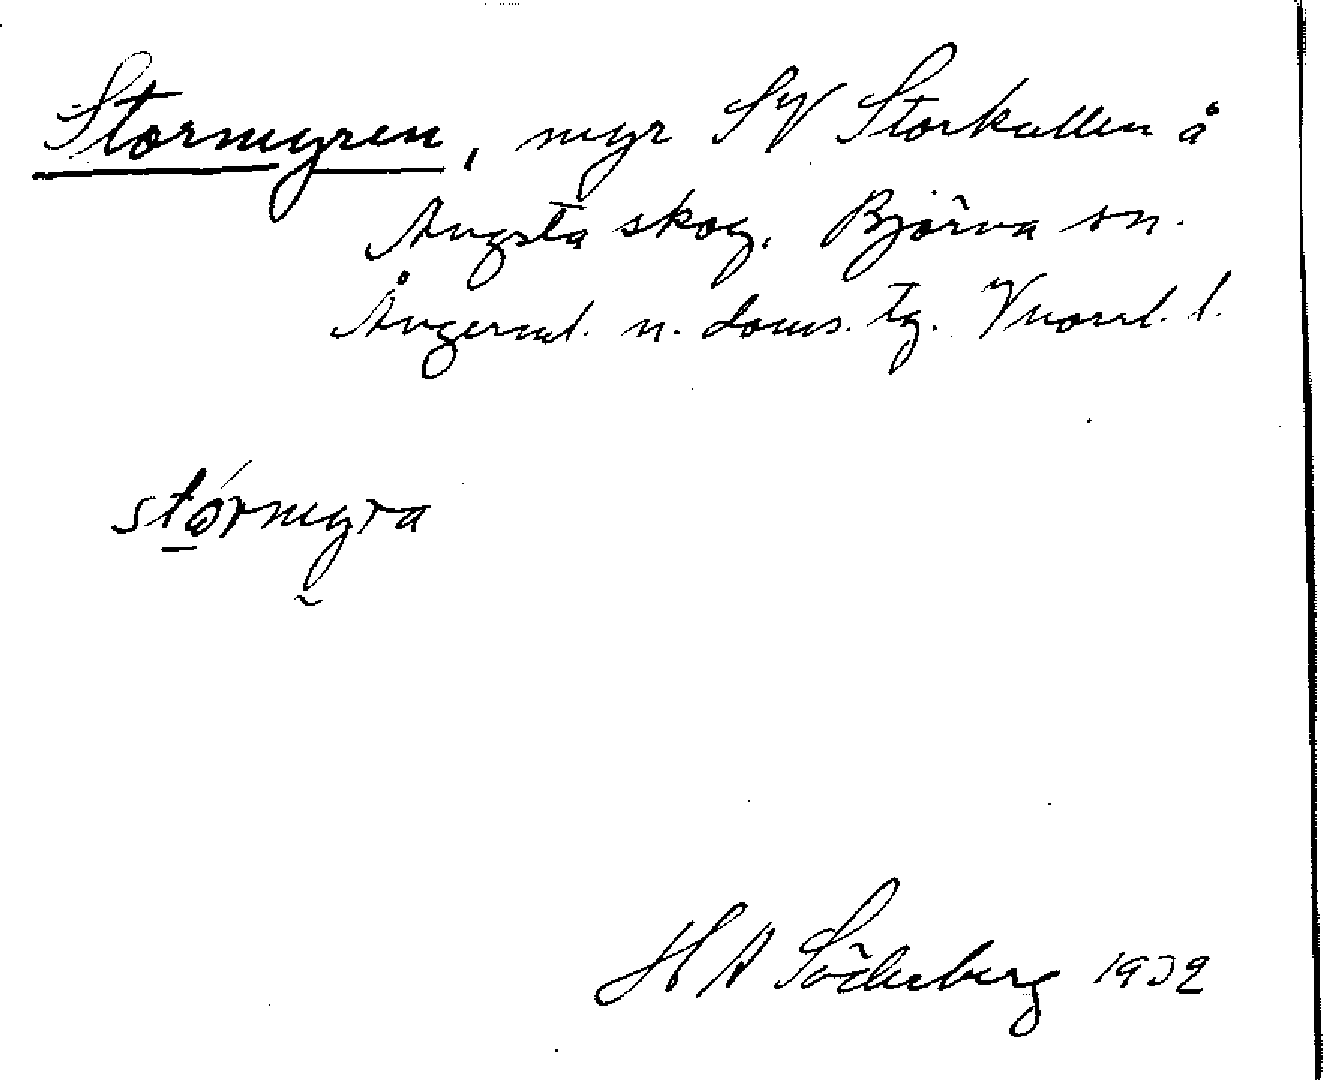 Stormyren, myr SV Storkullen å
Angsta skog. Björna sn.
Ångerml. n. doms. tg. Vnorrl. l.
stórmyra
H A Söderberg 1932